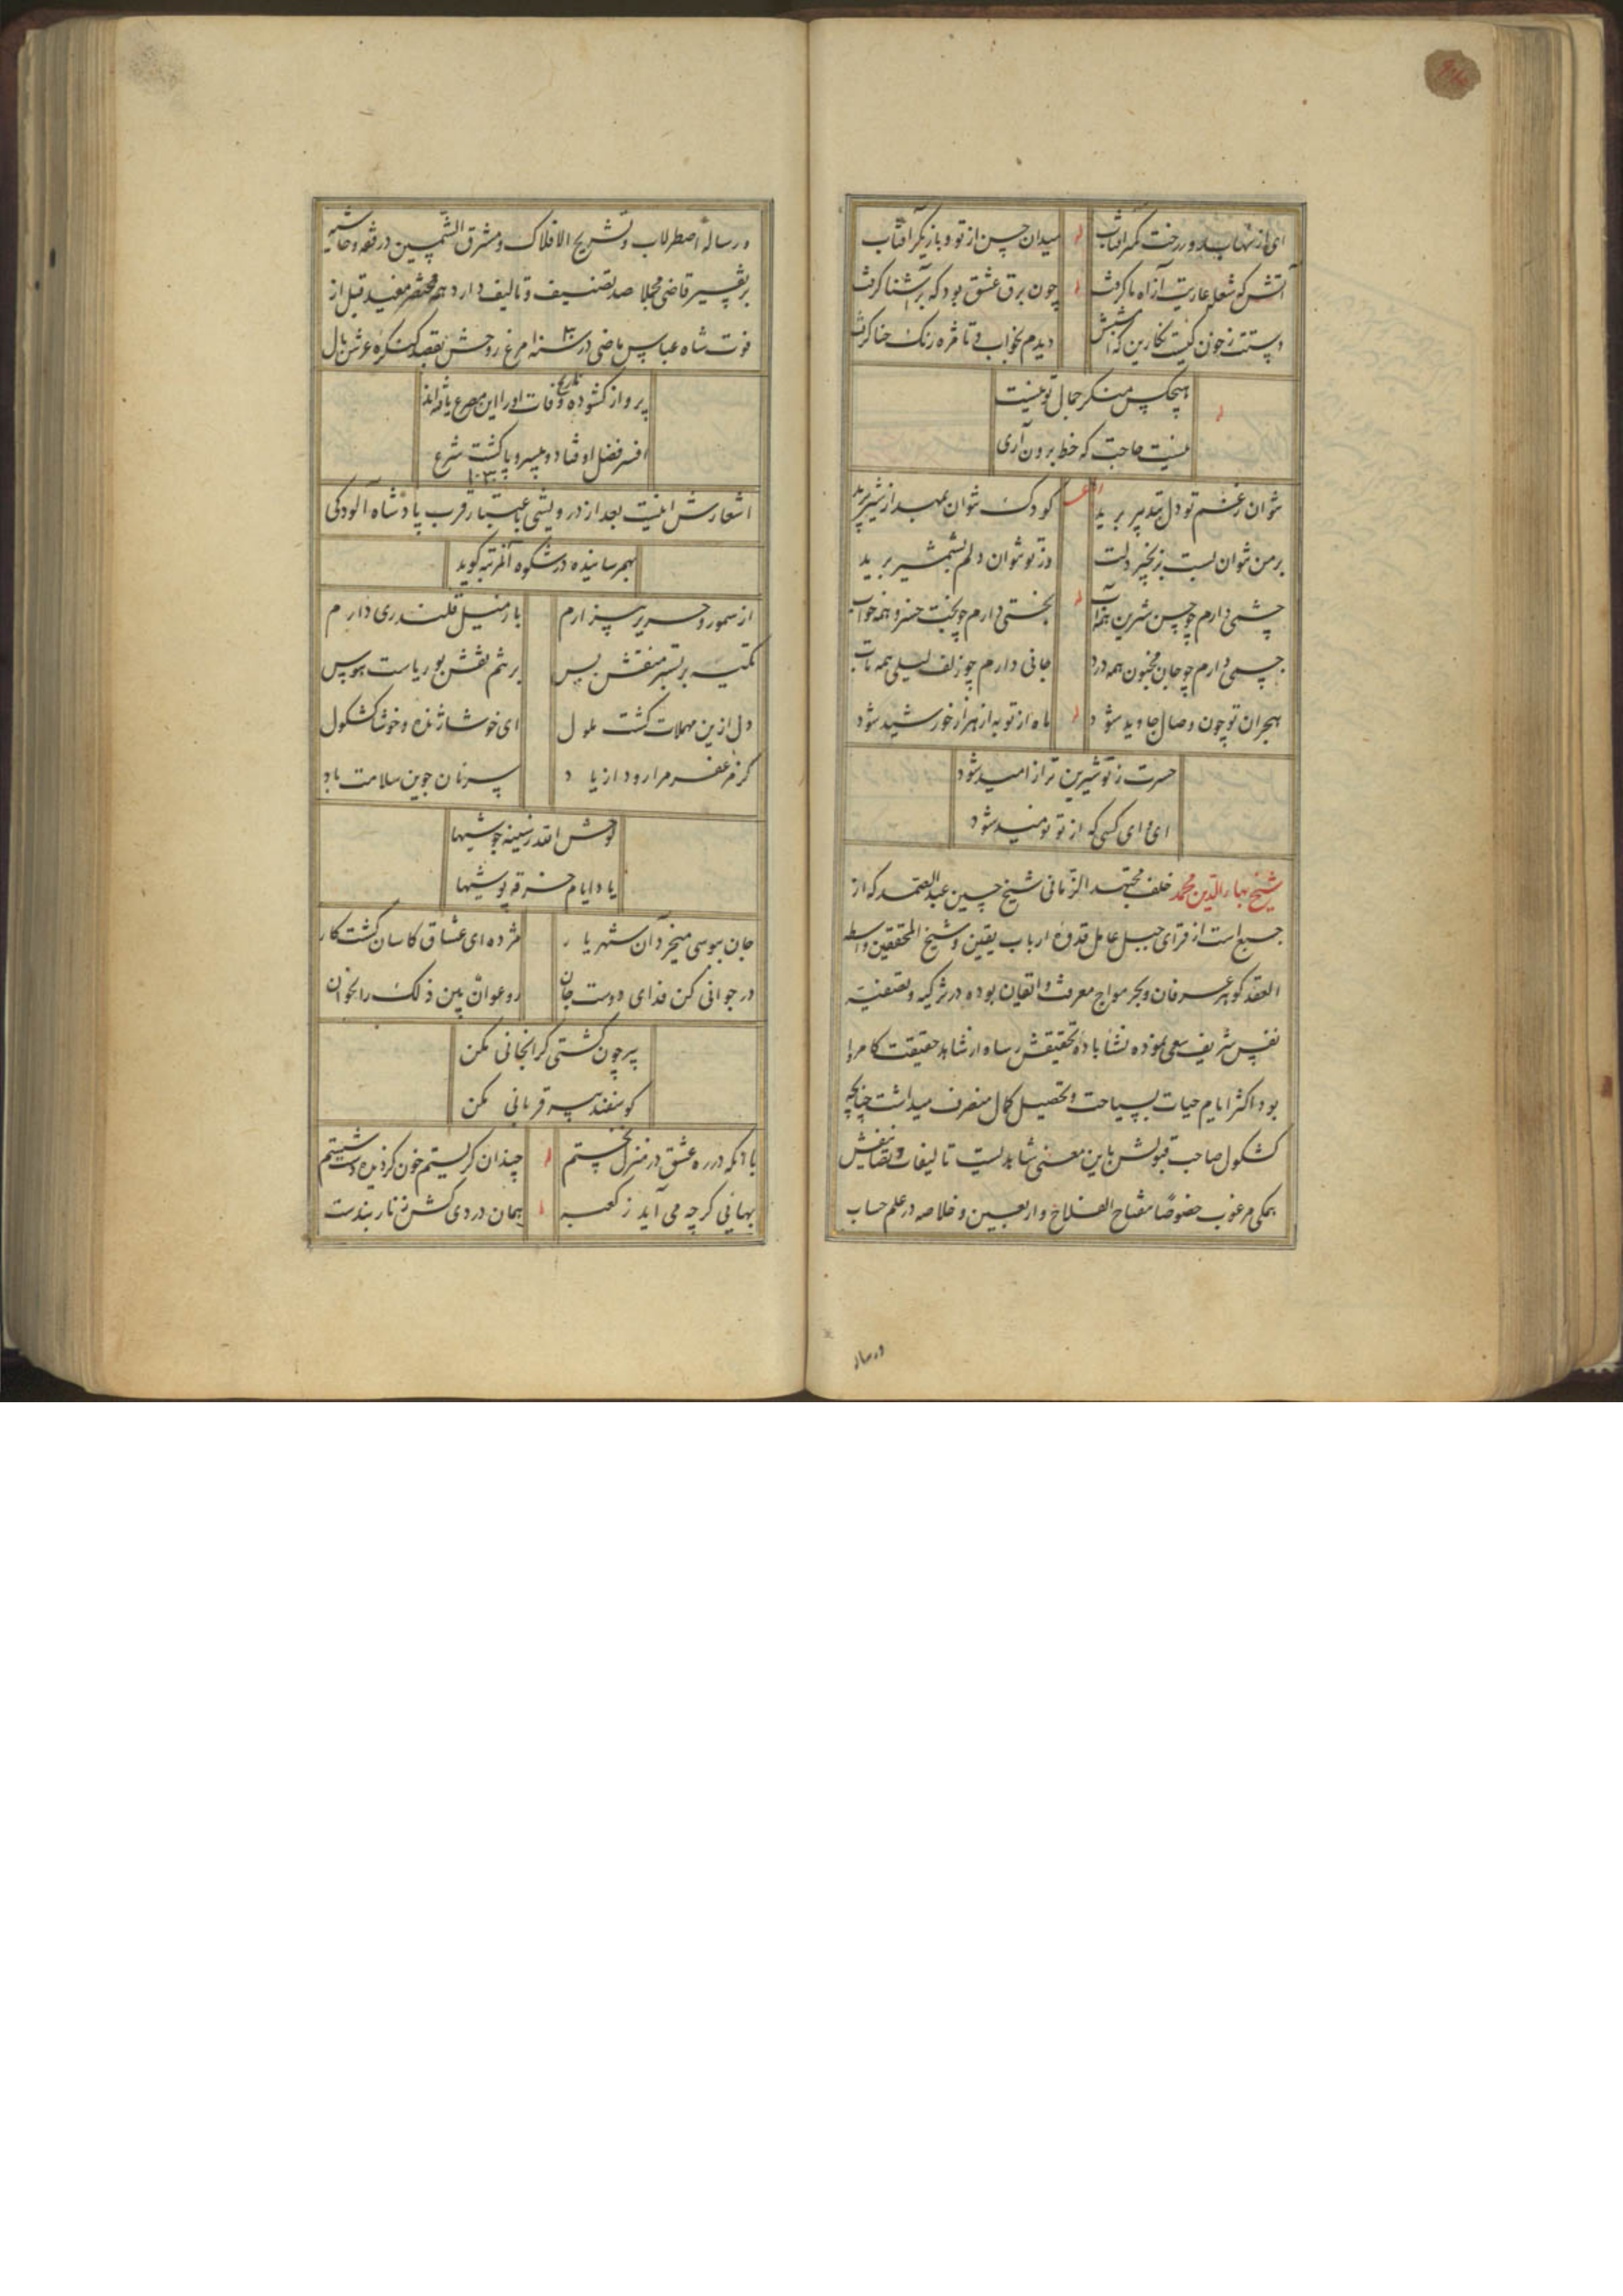 میدان حسن از تو و بازیگر آفتاب
آتش که شعله عاریت از آه ما گرفت چون برق عشق بود که بر آشنا گرفت
دستت ز خون کیست نگارین که
دیدم بخواب و تا مژه رنگ حنا گرفت
هیچکس منکر جمال تو نیست
نیست حاجت که خط برون آری
نتوان ز غم تو دل بتدبیر برید کودک نتوان بمهد از شیر برید
بر من نتوان بست بزنجیر دلت وز تو نتوان دلم بشمشیر برید
چشمی دارم چو حسن شیرین همه آب بختی دارم چو بخت خسرو همه خواب
جسمی دارم چو جان مجنون همه درد جانی دارم چو زلف لیلی همه تاب
هجران تو چون وصال جاوید شود ماه از تو به از هزار خورشید شود
حسرت ز تو شیرین تر از امید شود
ای وای کسی که از تو نومید شود
شیخ بهاء الدین محمد خلف مجتهد الزمانی شیخ حسین عبد الصمد که از
جبع است از قرای جبل عامل قدوه ارباب یقین و شیخ المحققین واسطه
العقد گوهر عرفان و بحر مواج معرفت و اتقان بوده در تزکیه و تصفیه
نفس شریف سعی نموده نشأ باده تحقیقش رسا و از شاهد حقیقت کامروا
بود اکثر ایام حیات بسیاحت و تحصیل کمال مصرف میداشت چنانچه
کشکول صاحب قبولش باین معنی شاهدیست تالیفات و تصانیفش
همگی مرغوب خصوصا مفتاح الفلاح و اربعین و خلاصه در علم حساب
و رساله
و رساله اصطرلاب و تشریح الافلاک و مشرق الشمسین در فقه و حاشیه
بر تفسیر قاضی مجملا صد تصنیف و تالیف دارد همه مختصر مفید قبل از
فوت شاه عباس ماضی در سنه ۱۰۳۰ مرغ روحش بقصد کنگره عرش بال
پرواز گشوده تاریخ وفات او را این مصرع یافته اند
افسر فضل اوفتاد و بیسر و پا گشت شرع
۱۰۳۰
اشعارش اینست بعد از درویشی باعتبار قرب پادشاه آلودگی
بهمرسانیده در شکوه آنمرتبه گوید
از سمور و حریر بیزارم باز میل قلندری دارم
تکیه بر بستر منقش بس بر تنم نقش بوریاست هوس
دل ازین مهملات گشت ملول ای خوشا ژنده و خوشا کشکول
گر مزعفر مرا رود از یاد سر نان جوین سلامت باد
لوحش الله ز سینه جوشیها
یاد ایام خرقه پوشیها
جان ببوسی میخرد آن شهریار مژده ای عشاق کاسان گشت کار
در جوانی کن فدای دوست جان رو عوان بین ذلک را بخوان
پیر چون گشتی گرانجانی مکن
گوسفند پیر قربانی مکن
با آنکه در ره عشق در منزل نخستم چندان گریستم خون کز دیده دست شستم
بهائی گرچه می آید ز کعبه همان دردی کش زنار بندست